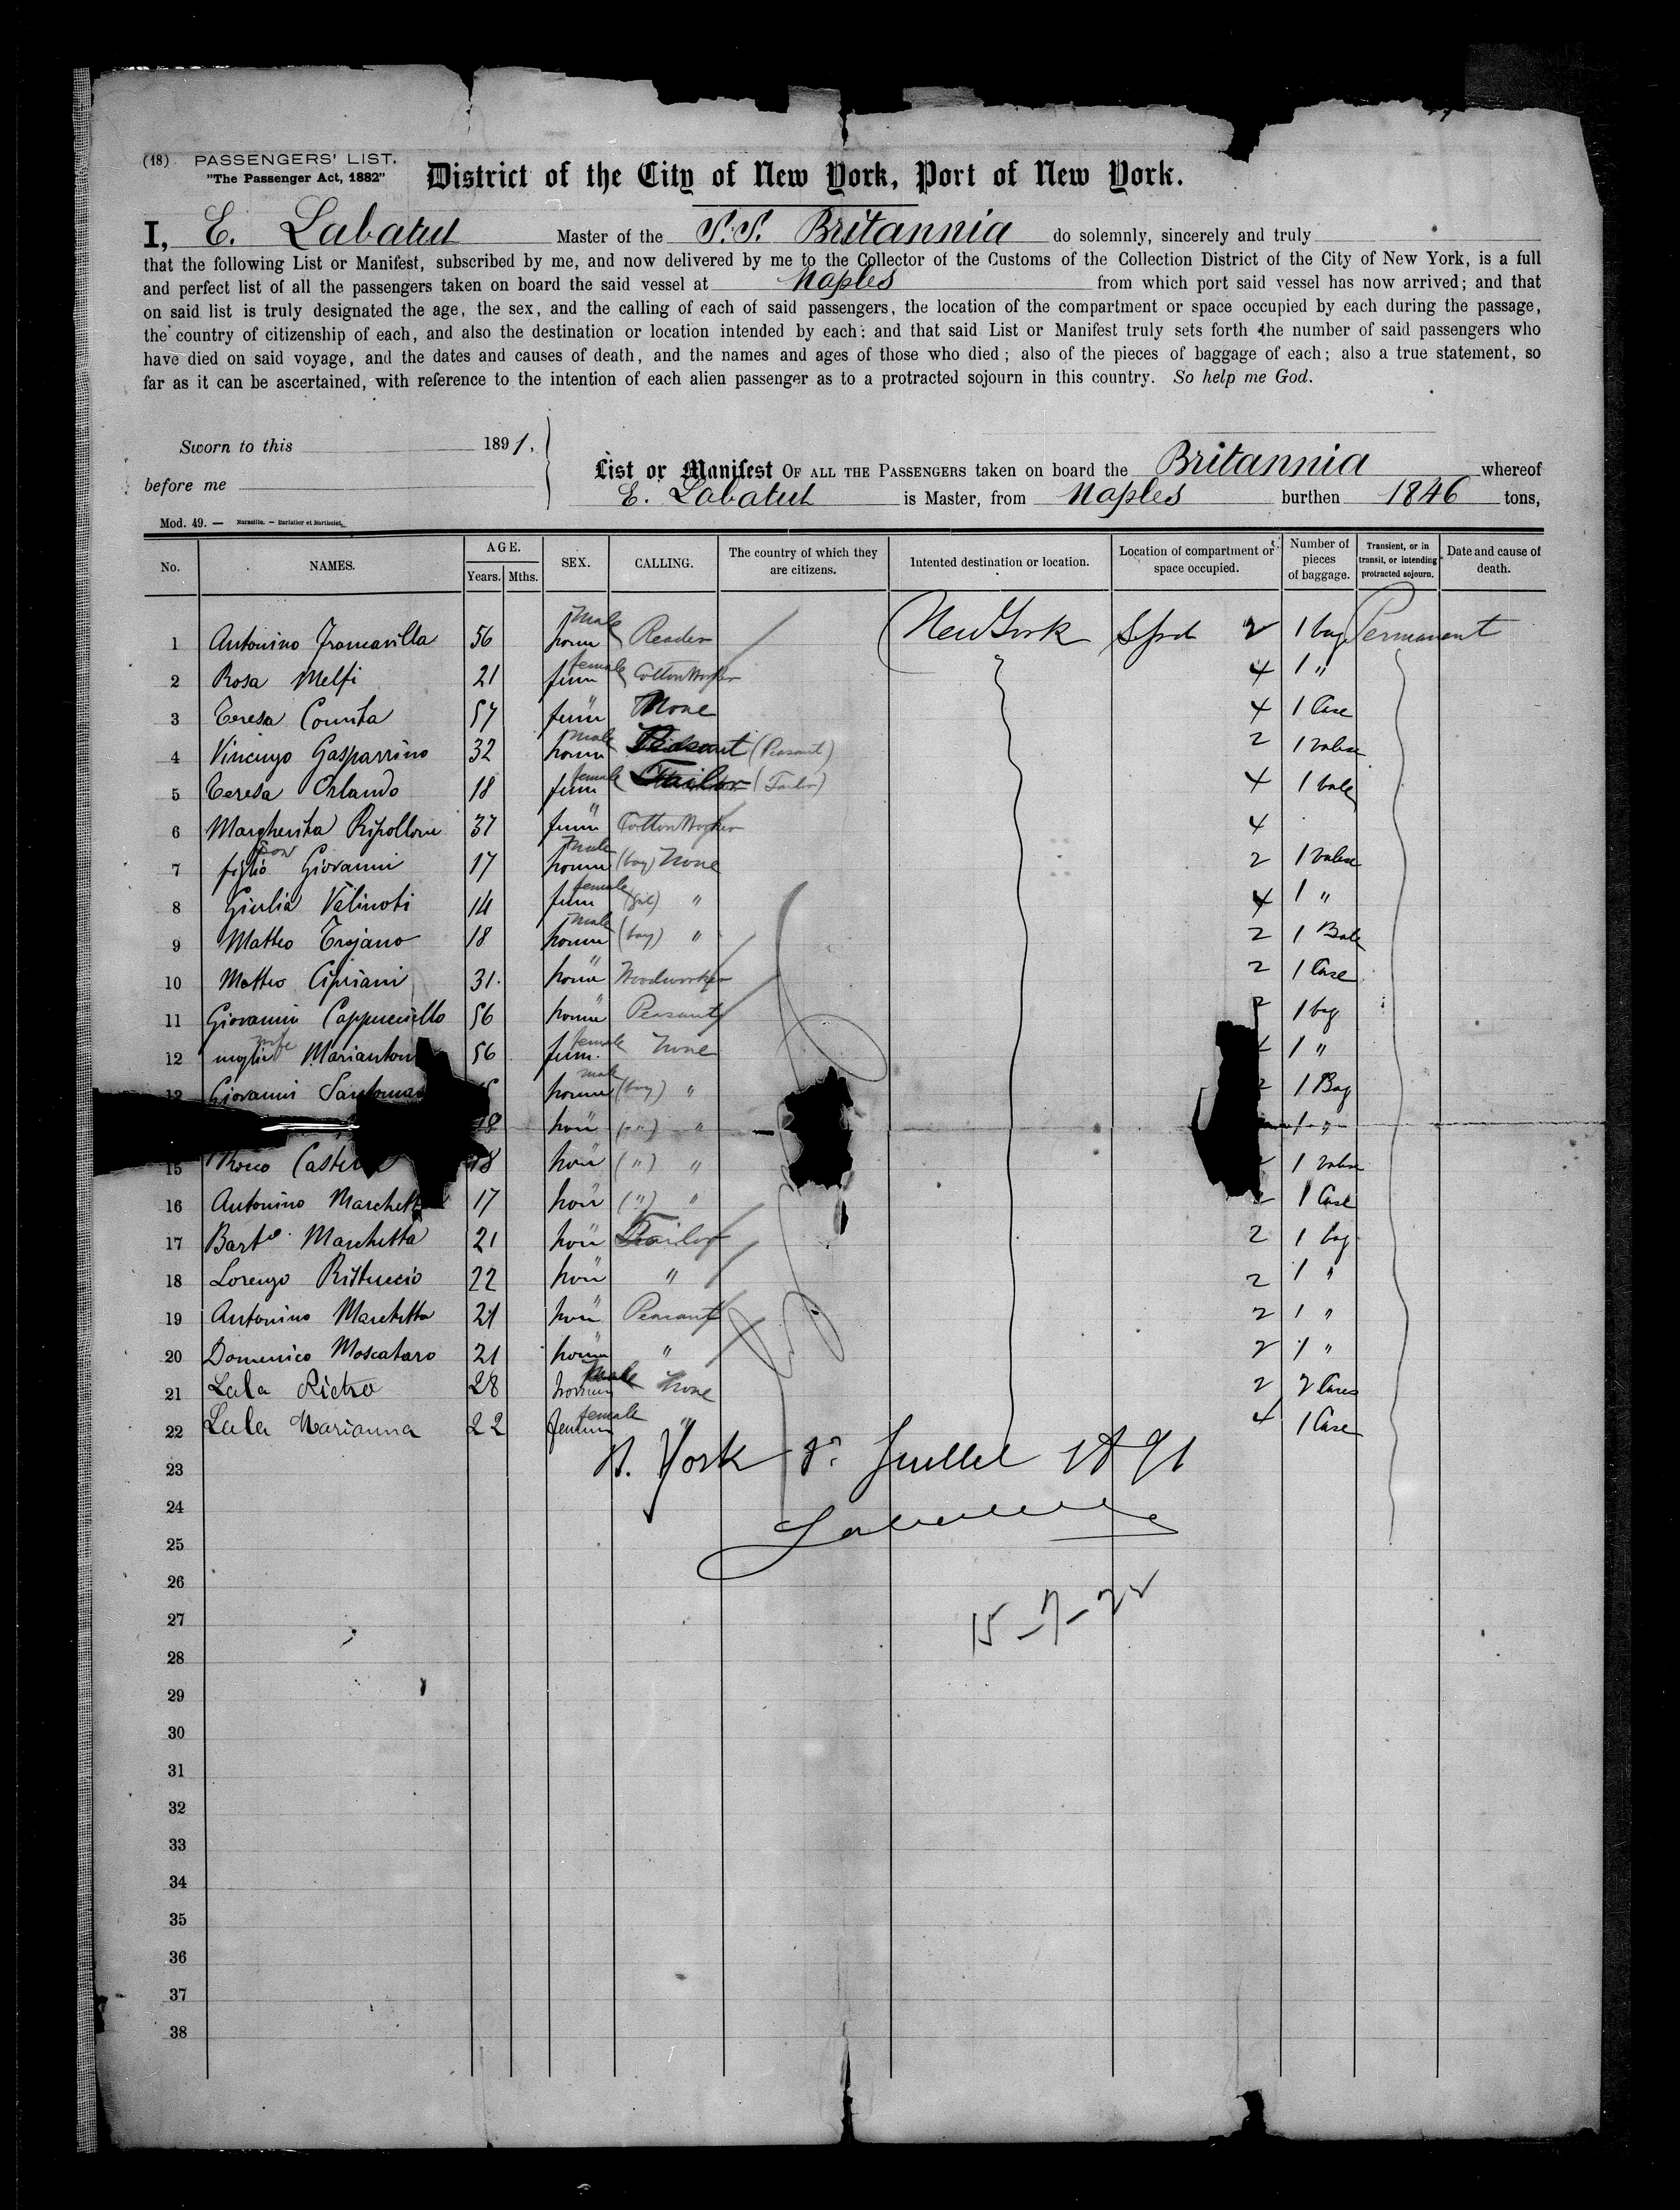 (18) PASSENGERS' LIST.
"The Passenger Act, 1882"
District of the City of New York, Port of New York.
I, E. Labatut Master of the S.S. Britannia do solemnly, sincerely and truly
that the following List or Manifest, subscribed by me, and now delivered by me to the Collector of the Customs of the Collection District of the City of New York, is a full
and perfect list of all the passengers taken on board the said vessel at Naples from which port said vessel has now arrived; and that
on said list is truly designated the age, the sex, and the calling of each of said passengers, the location of the compartment or space occupied by each during the passage,
the country of citizenship of each, and also the destination or location intended by each: and that said List or Manifest truly sets forth the number of said passengers who
have died on said voyage, and the dates and causes of death, and the names and ages of those who died; also of the pieces of baggage of each; also a true statement, so
far as it can be ascertained, with reference to the intention of each alien passenger as to a protracted sojourn in this country. So help me God.
Sworn to this 1891.
before me
List or Manifest OF ALL THE PASSENGERS taken on board the Britannia whereof
E. Labatut is Master, from Naples burthen 1846 tons,
Mod. 49. — Marseille. — Barlatier et Barthelet.
No. NAMES. AGE. Years. Mths. SEX. CALLING. The country of which they are citizens. Intented destination or location. Location of compartment or space occupied. Number of pieces of baggage. Transient, or in transit, or intending protracted sojourn. Date and cause of death.
1 Antonino 56 male Reader New York 2 1 bag Permanent
2 Rosa Melfi 21 female Cotton Worker 4 1 "
3 Teresa 57 " None 4 1 Case
4 Vincenzo Gasparrino 32 male Peasant (Peasant) 2 1 valise
5 Teresa Orlando 18 female Tailor (Tailor) 4 1 bale
6 Margherita 37 " Cotton Worker 4
7 figlio son Giovanni 17 male (boy) None 2 1 valise
8 Giulia Velinoti 14 female (girl) " 4 1 "
9 Matteo Trojano 18 male (boy) " 2 1 Bale
10 Matteo Cipriani 31 " Woodworker 2 1 Case
11 Giovanni Cappucciello 56 " Peasant 2 1 bag
12 moglie wife 56 female None 1 "
13 Giovanni male (boy) " 1 Bag
18 " (") " 1 "
15 Rocco 18 " (") " 1 valise
16 Antonino 17 " (") " 1 Case
17 Barto Marchetta 21 " Tailor 2 1 bag
18 Lorenzo Ristuccio 22 " " 2 1 "
19 Antonino Marchetta 21 " Peasant 2 1 "
20 Domenico Moscataro 21 " " 2 1 "
21 Lala Pietro 28 male None 2 2 Cases
22 Lala Marianna 22 female " 4 1 Case
23
N. York 8. Juillet 1891
24
25
26
27
15-7-22
28
29
30
31
32
33
34
35
36
37
38